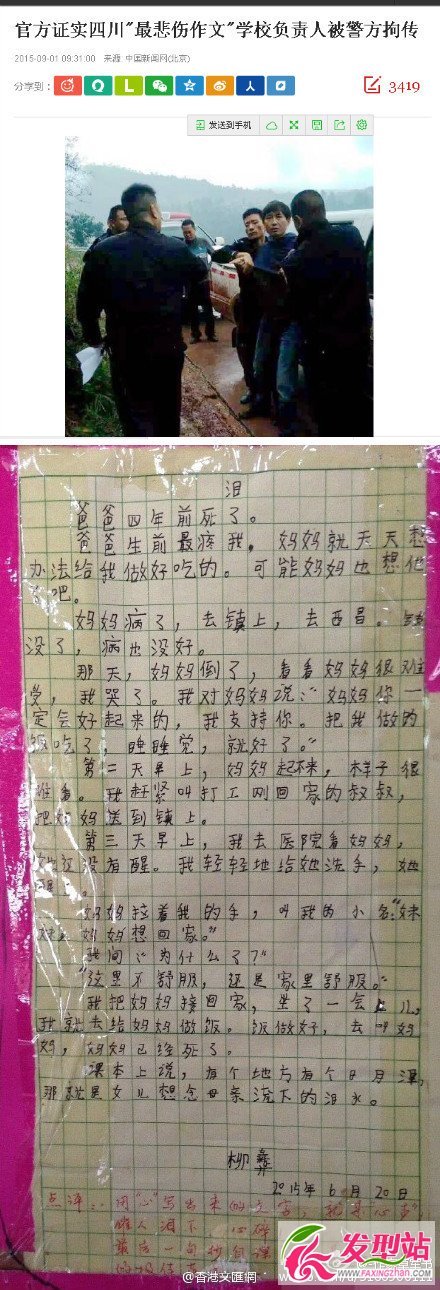 官方证实四川"最悲伤作文"学校负责人被警方拘传
2015-09-01 09:31:00 来源: 中国新闻网(北京)
分享到:
3419
发送到手机
泪
爸爸四年前死了。
爸爸生前最疼我。妈妈就天天想
办法给我做好吃的。可能妈妈也想他
了吧。
妈妈病了,去镇上,去西昌。钱
没了,病也没好。
那天,妈妈倒了,看看妈妈很难
受,我哭了。我对妈妈说:“妈妈你一
定会好起来的,我支持你。把我做的
饭吃了,睡睡觉,就好了。”
第二天早上,妈妈起不来,样子很
难看。我赶紧叫打工刚回家的叔叔,
把妈妈送到镇上。
第三天早上,我去医院看妈妈,
她还没有醒。我轻轻地给她洗手,她
醒了。
妈妈拉着我的手,叫我的小名:“妹
妹,妈妈想回家。”
我问:“为什么了?”
“这里不舒服,还是家里舒服。”
我把妈妈接回家,坐了一会儿,
我就去给妈妈做饭。饭做好,去叫妈
妈,妈妈已经死了。
课本上说,有个地方有个日月潭,
那就是女儿想念母亲流下的泪水。
柳彝
2015年6月20日
点评:用“心”写出来的文字,
催人泪下
最后一句
@香港文匯網
发型站
FAXINGZHAN.COM